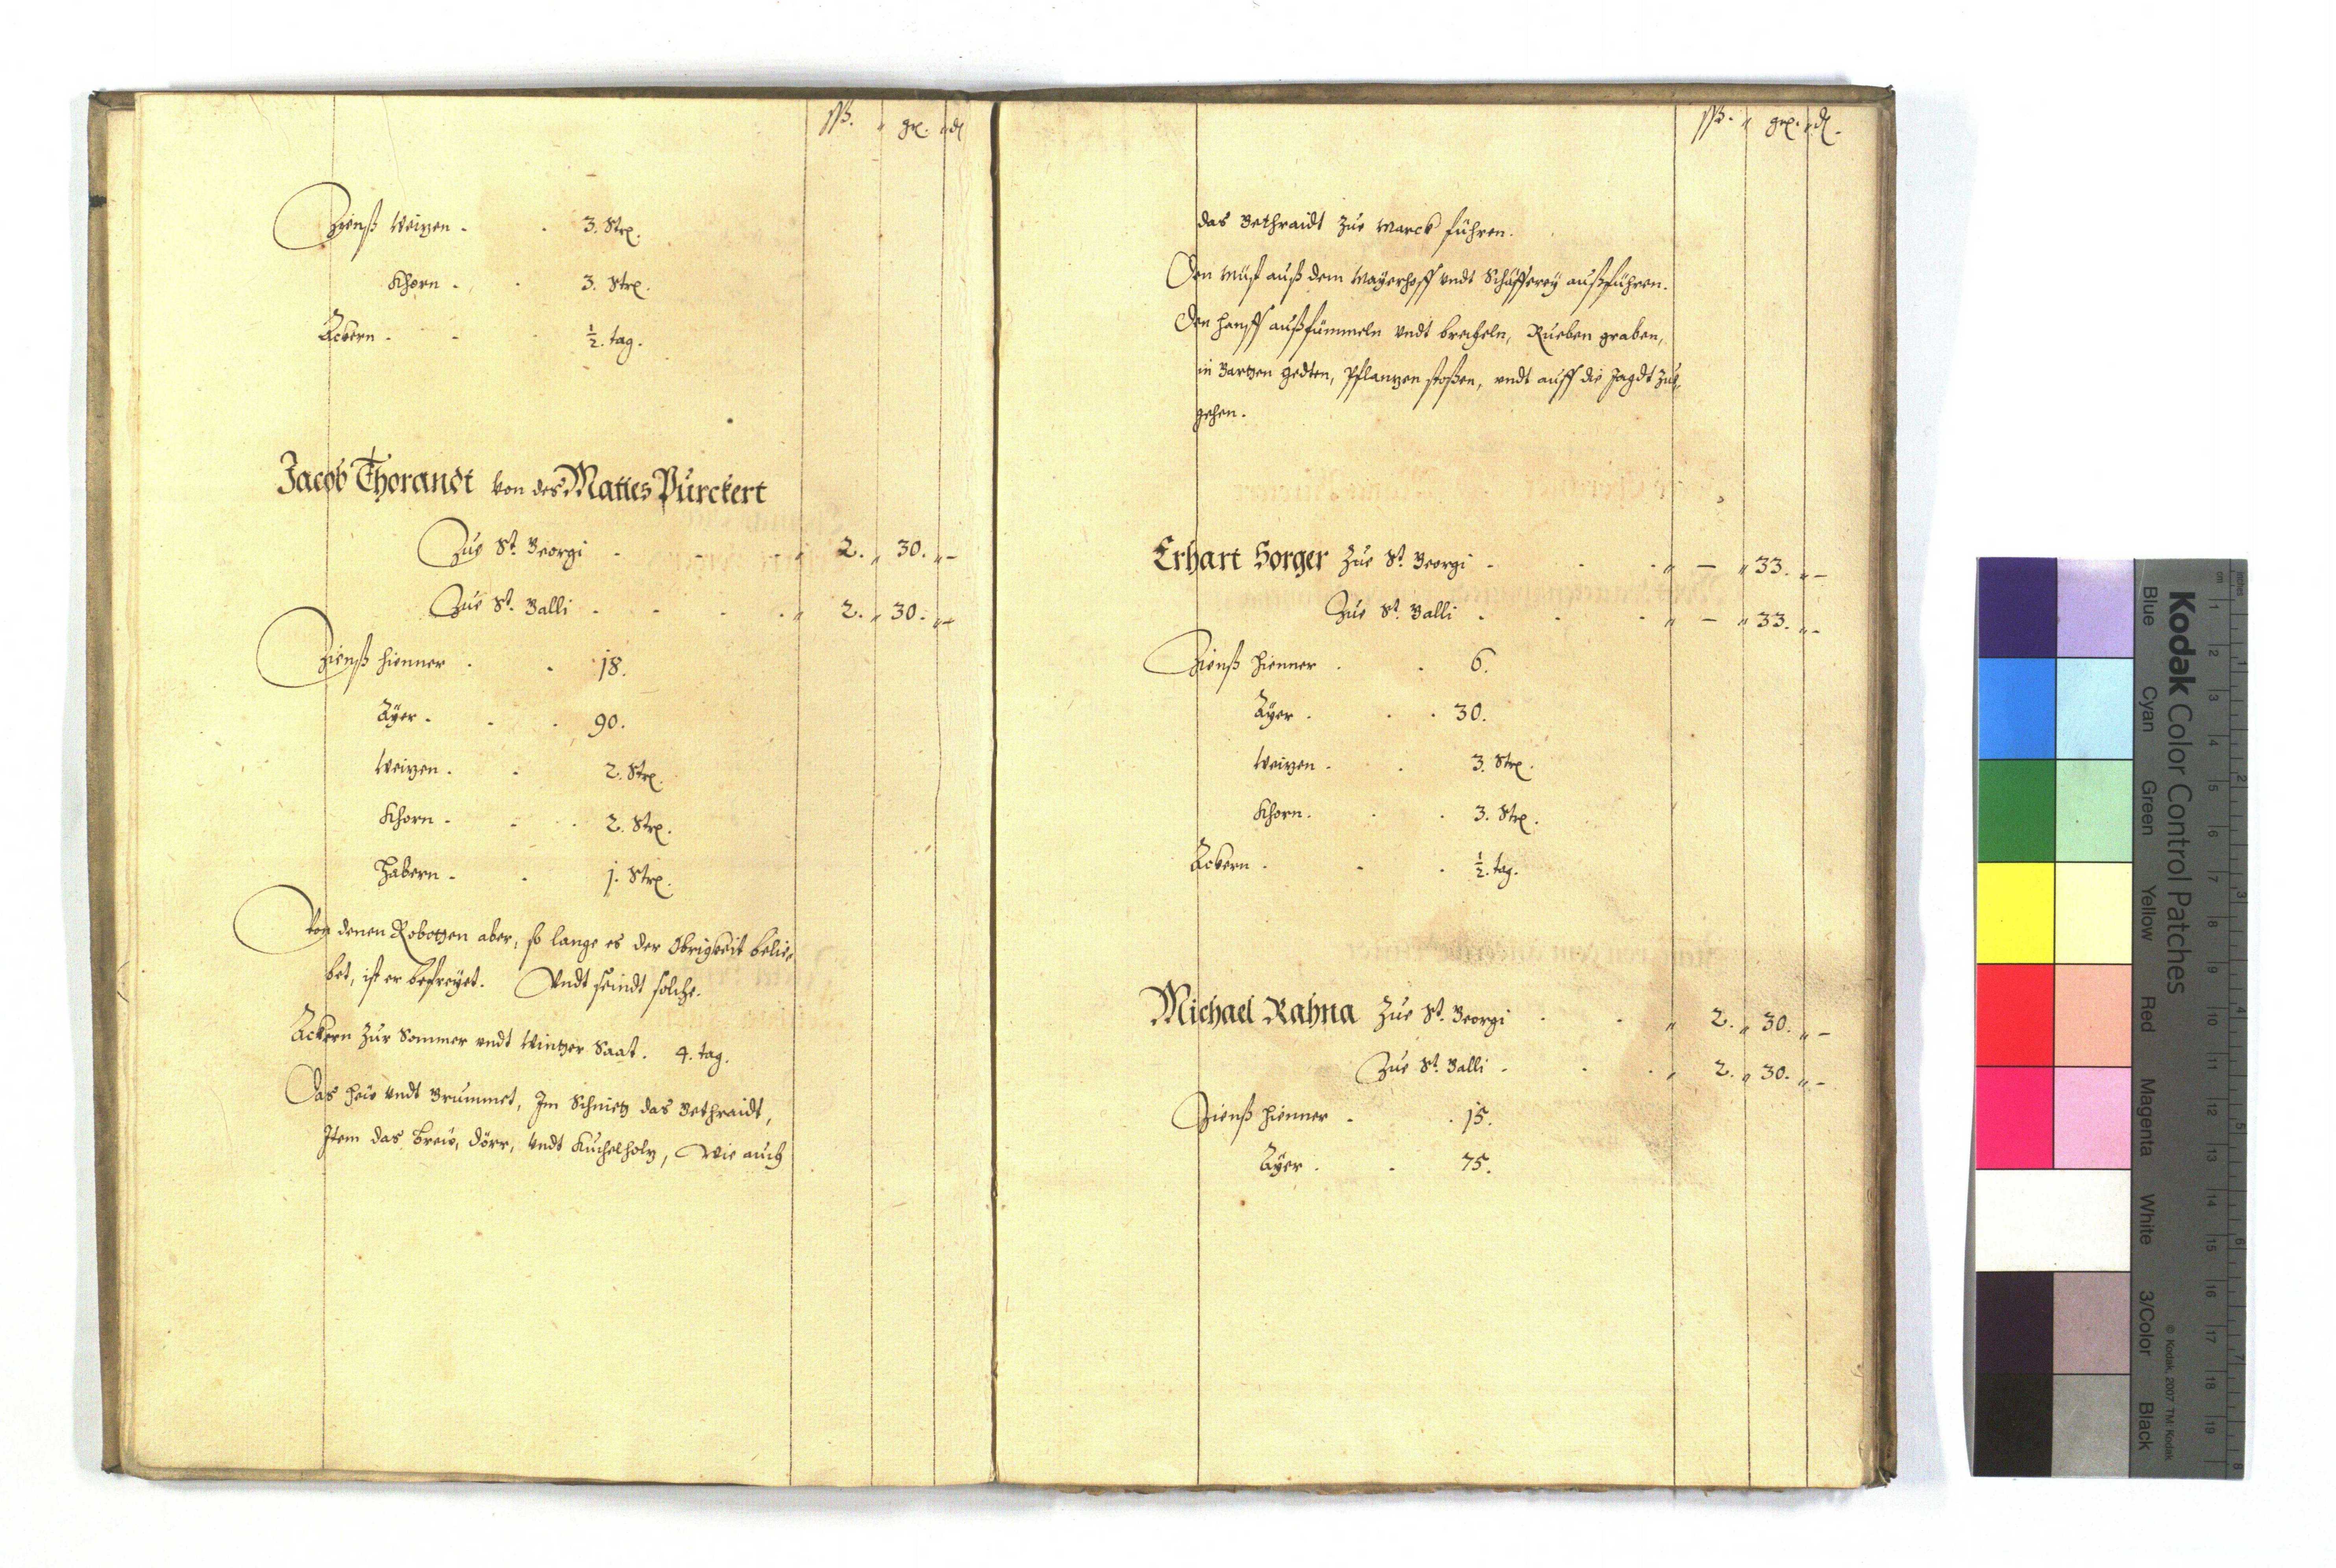 ßß. " gr. " dl
Zienß Weitzen . . 3. Str.
Khorn . . 3. Str.
Ackern . . ½. tag.
Jacob Thorandt Von des Maties Purckert
Zue St. Georgi . . . " 2. " 30. " –
Zue St. Galli . . . . " 2. " 30. " –
Zienß hienner . . 18.
Ayer . . . 90.
Weitzen . . 2. Str.
Khorn . . . 2. Str.
Habern . . 1. Str.
Von denen Robothen aber, so lange es der Obrigkeit belie-
bet, ist er befreyet. Undt seindt solche.
Ackern Zur Sommer undt Winter Saat. 4. tag.
Das Heü undt Grummet, Im Schniet das Gethraidt,
Item das Breü, dörr, undt Kuchelholtz, Wie auch
ßß. " gr. " dl.
das Gethraidt Zue Marck führen.
Den Mist auß dem Mayerhoff undt Schäfferey außführen.
Den Hanff außfümmeln undt brecheln, Rueben graben,
in Garten gedten, Pflantzen stoßen, undt auff die Jagdt Zue
gehen.
Erhart Sorger Zue St. Georgi . . . " – " 33. " –
Zue St. Galli . . . " – " 33. " –
Zienß hienner . . 6.
Ayer . . . 30.
Weitzen . . 3. Str.
Khorn . . . 3. Str.
Ackern . . . ½. tag.
Michael Rahna Zue St. Georgi . . " 2. " 30. " –
Zue St. Galli . . . " 2. " 30. " –
Zienß hienner . . 15.
Ayer . . 75.
Kodak Color Control Patches
Blue Cyan Green Yellow Red Magenta White 3/Color Black
© Kodak, 2007 TM: Kodak
inches 1 2 3 4 5 6 7 8
cm 1 2 3 4 5 6 7 8 9 10 11 12 13 14 15 16 17 18 19